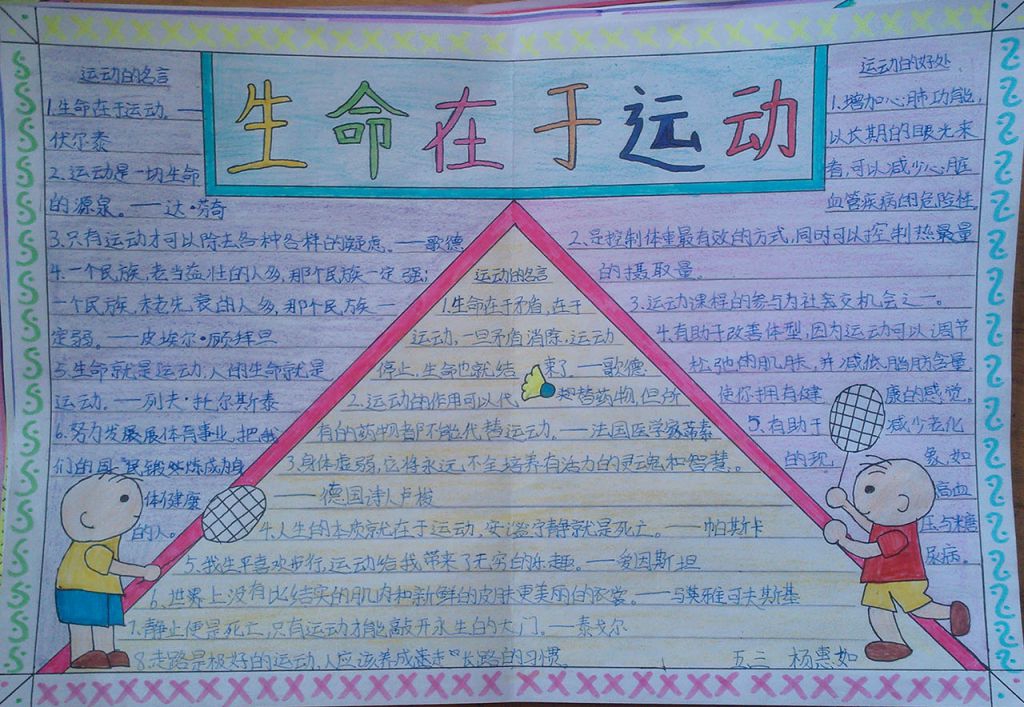 生命在于运动
运动的名言
1.生命在于运动。——
伏尔泰
2.运动是一切生命
的源泉。——达·芬奇
3.只有运动才可以除去各种各样的疑虑。——歌德
4.一个民族,老当益壮的人多,那个民族一定强;
一个民族,未老先衰的人多,那个民族一
定弱。——皮埃尔·顾拜旦
5.生命就是运动,人的生命就是
运动。——列夫·托尔斯泰
6.努力发展展体育事业,把我
们的国民锻炼成为身
体健康
的人。
运动的名言
1.生命在于矛盾,在于
运动,一旦矛盾消除,运动
停止,生命也就结束了。——歌德
2.运动的作用可以代替药物,但所
有的药物都不能代替运动。——法国医学家蒂素
3.身体虚弱,它将永远不全培养有活力的灵魂和智慧。
——德国诗人卢梭
4.人生的本质就在于运动,安谧宁静就是死亡。——帕斯卡
5.我生平喜欢步行,运动给我带来了无穷的乐趣。——爱因斯坦
6.世界上没有比结实的肌肉和新鲜的皮肤更美丽的衣裳。——马莫雅可夫斯基
7.静止便是死亡,只有运动才能敲开永生的大门。——泰戈尔
8.走路是极好的运动,人应该养成走长路的习惯。
运动的好处
1.增加心肺功能,
以长期的眼光来
看,可以减少心脏
血管疾病的危险性
2.是控制体重最有效的方式,同时可以控制热量
的摄取量。
3.运动课程的参与为社会交机会之一。
4.有助于改善体型,因为运动可以调节
松弛的肌肤,并减低脂肪含量
使你拥有健康的感觉。
5.有助于减少老化
的现象,如
高血
压与糖
尿病。
五二 杨惠如